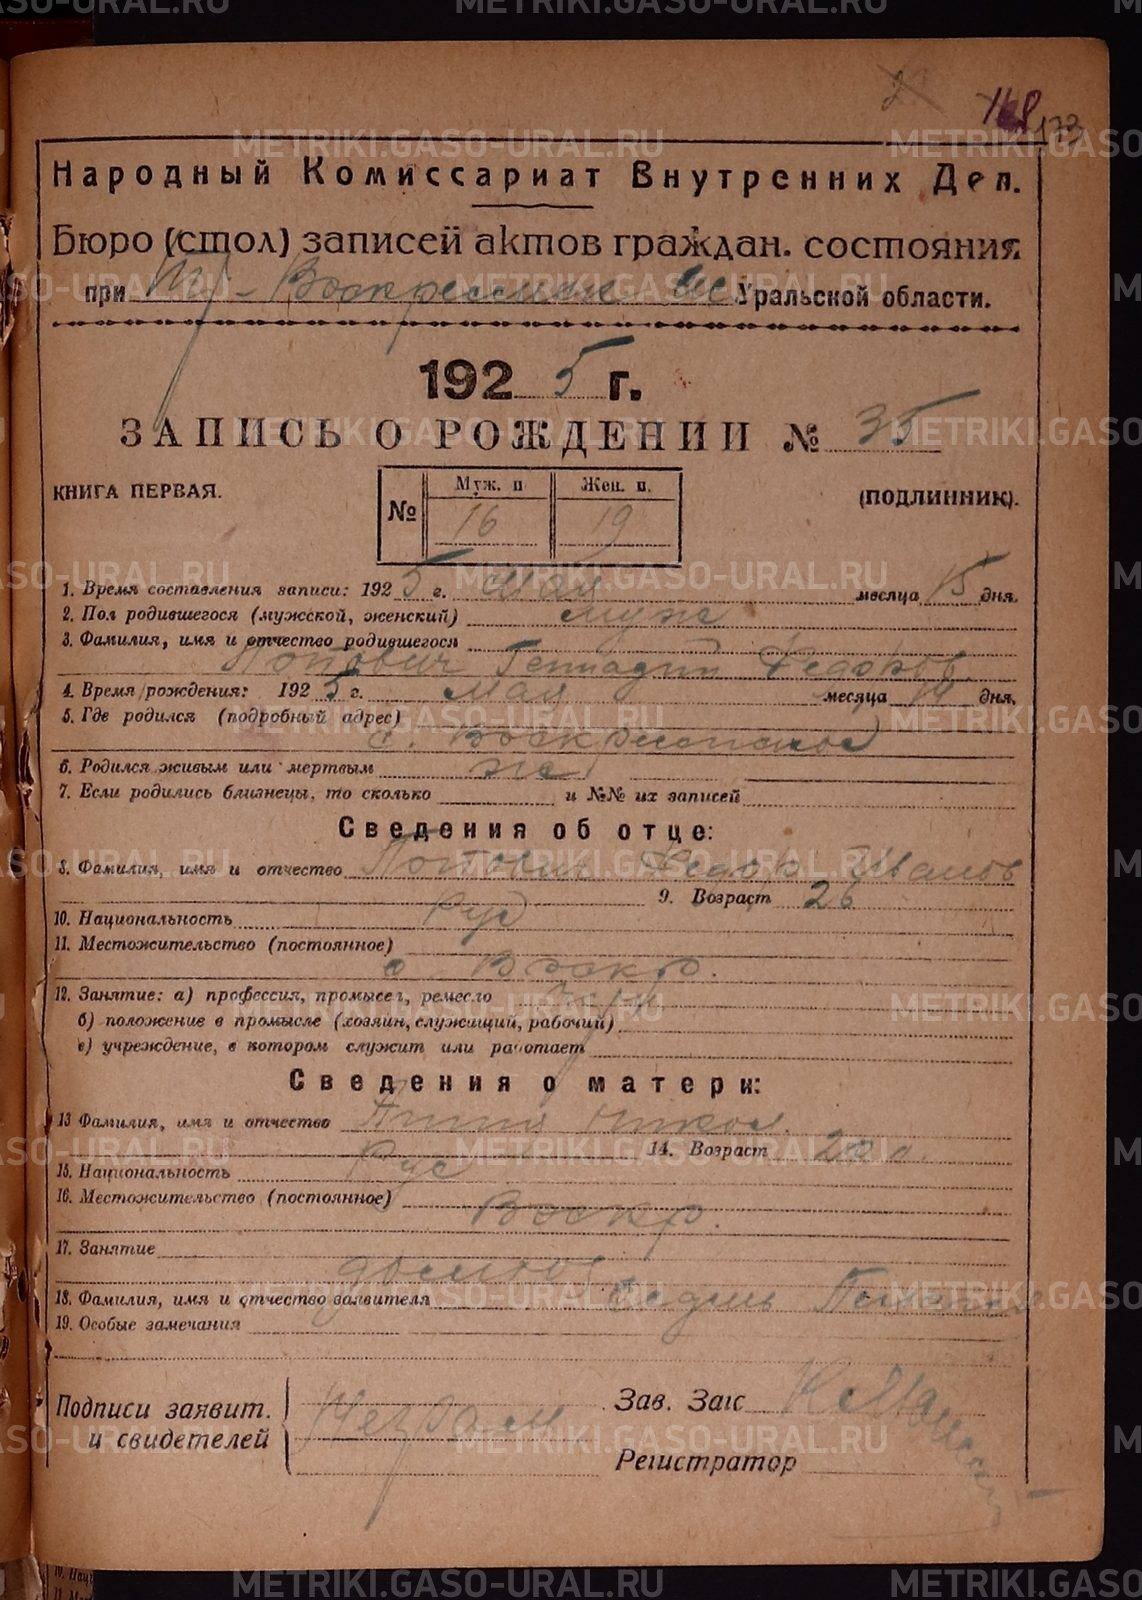 168
173
Народный Комиссариат Внутренних Дел.
Бюро (стол) записей актов граждан. состояния
при Воскресенске Уральской области.
1925 г.
ЗАПИСЬ О РОЖДЕНИИ № 35
КНИГА ПЕРВАЯ.
№ Муж. п Жен. п.
16 19
(ПОДЛИННИК).
1. Время составления записи: 1925 г. Мая месяца 15 дня.
2. Пол родившегося (мужской, женский) муж
3. Фамилия, имя и отчество родившегося
Попович Геннадий Федоров
4. Время рождения: 1925 г. мая месяца 14 дня.
5. Где родился (подробный адрес)
с. Воскресенское
6. Родился живым или мертвым жив
7. Если родились близнецы, то сколько и №№ их записей
Сведения об отце:
8. Фамилия, имя и отчество Попович Федор Иванов
9. Возраст 26
10. Национальность Рус
11. Местожительство (постоянное)
с Воскр.
12. Занятие: а) профессия, промысел, ремесло
б) положение в промысле (хозяин, служащий, рабочий)
в) учреждение, в котором служит или работает
Сведения о матери:
13 Фамилия, имя и отчество Никол.
14. Возраст 20 л.
15. Национальность Рус
16. Местожительство (постоянное)
Воскр.
17. Занятие
домхоз
18. Фамилия, имя и отчество заявителя
19. Особые замечания
Подписи заявит.
и свидетелей
Неграм
Зав. Загс
Регистратор
METRIKI.GASO-URAL.RU